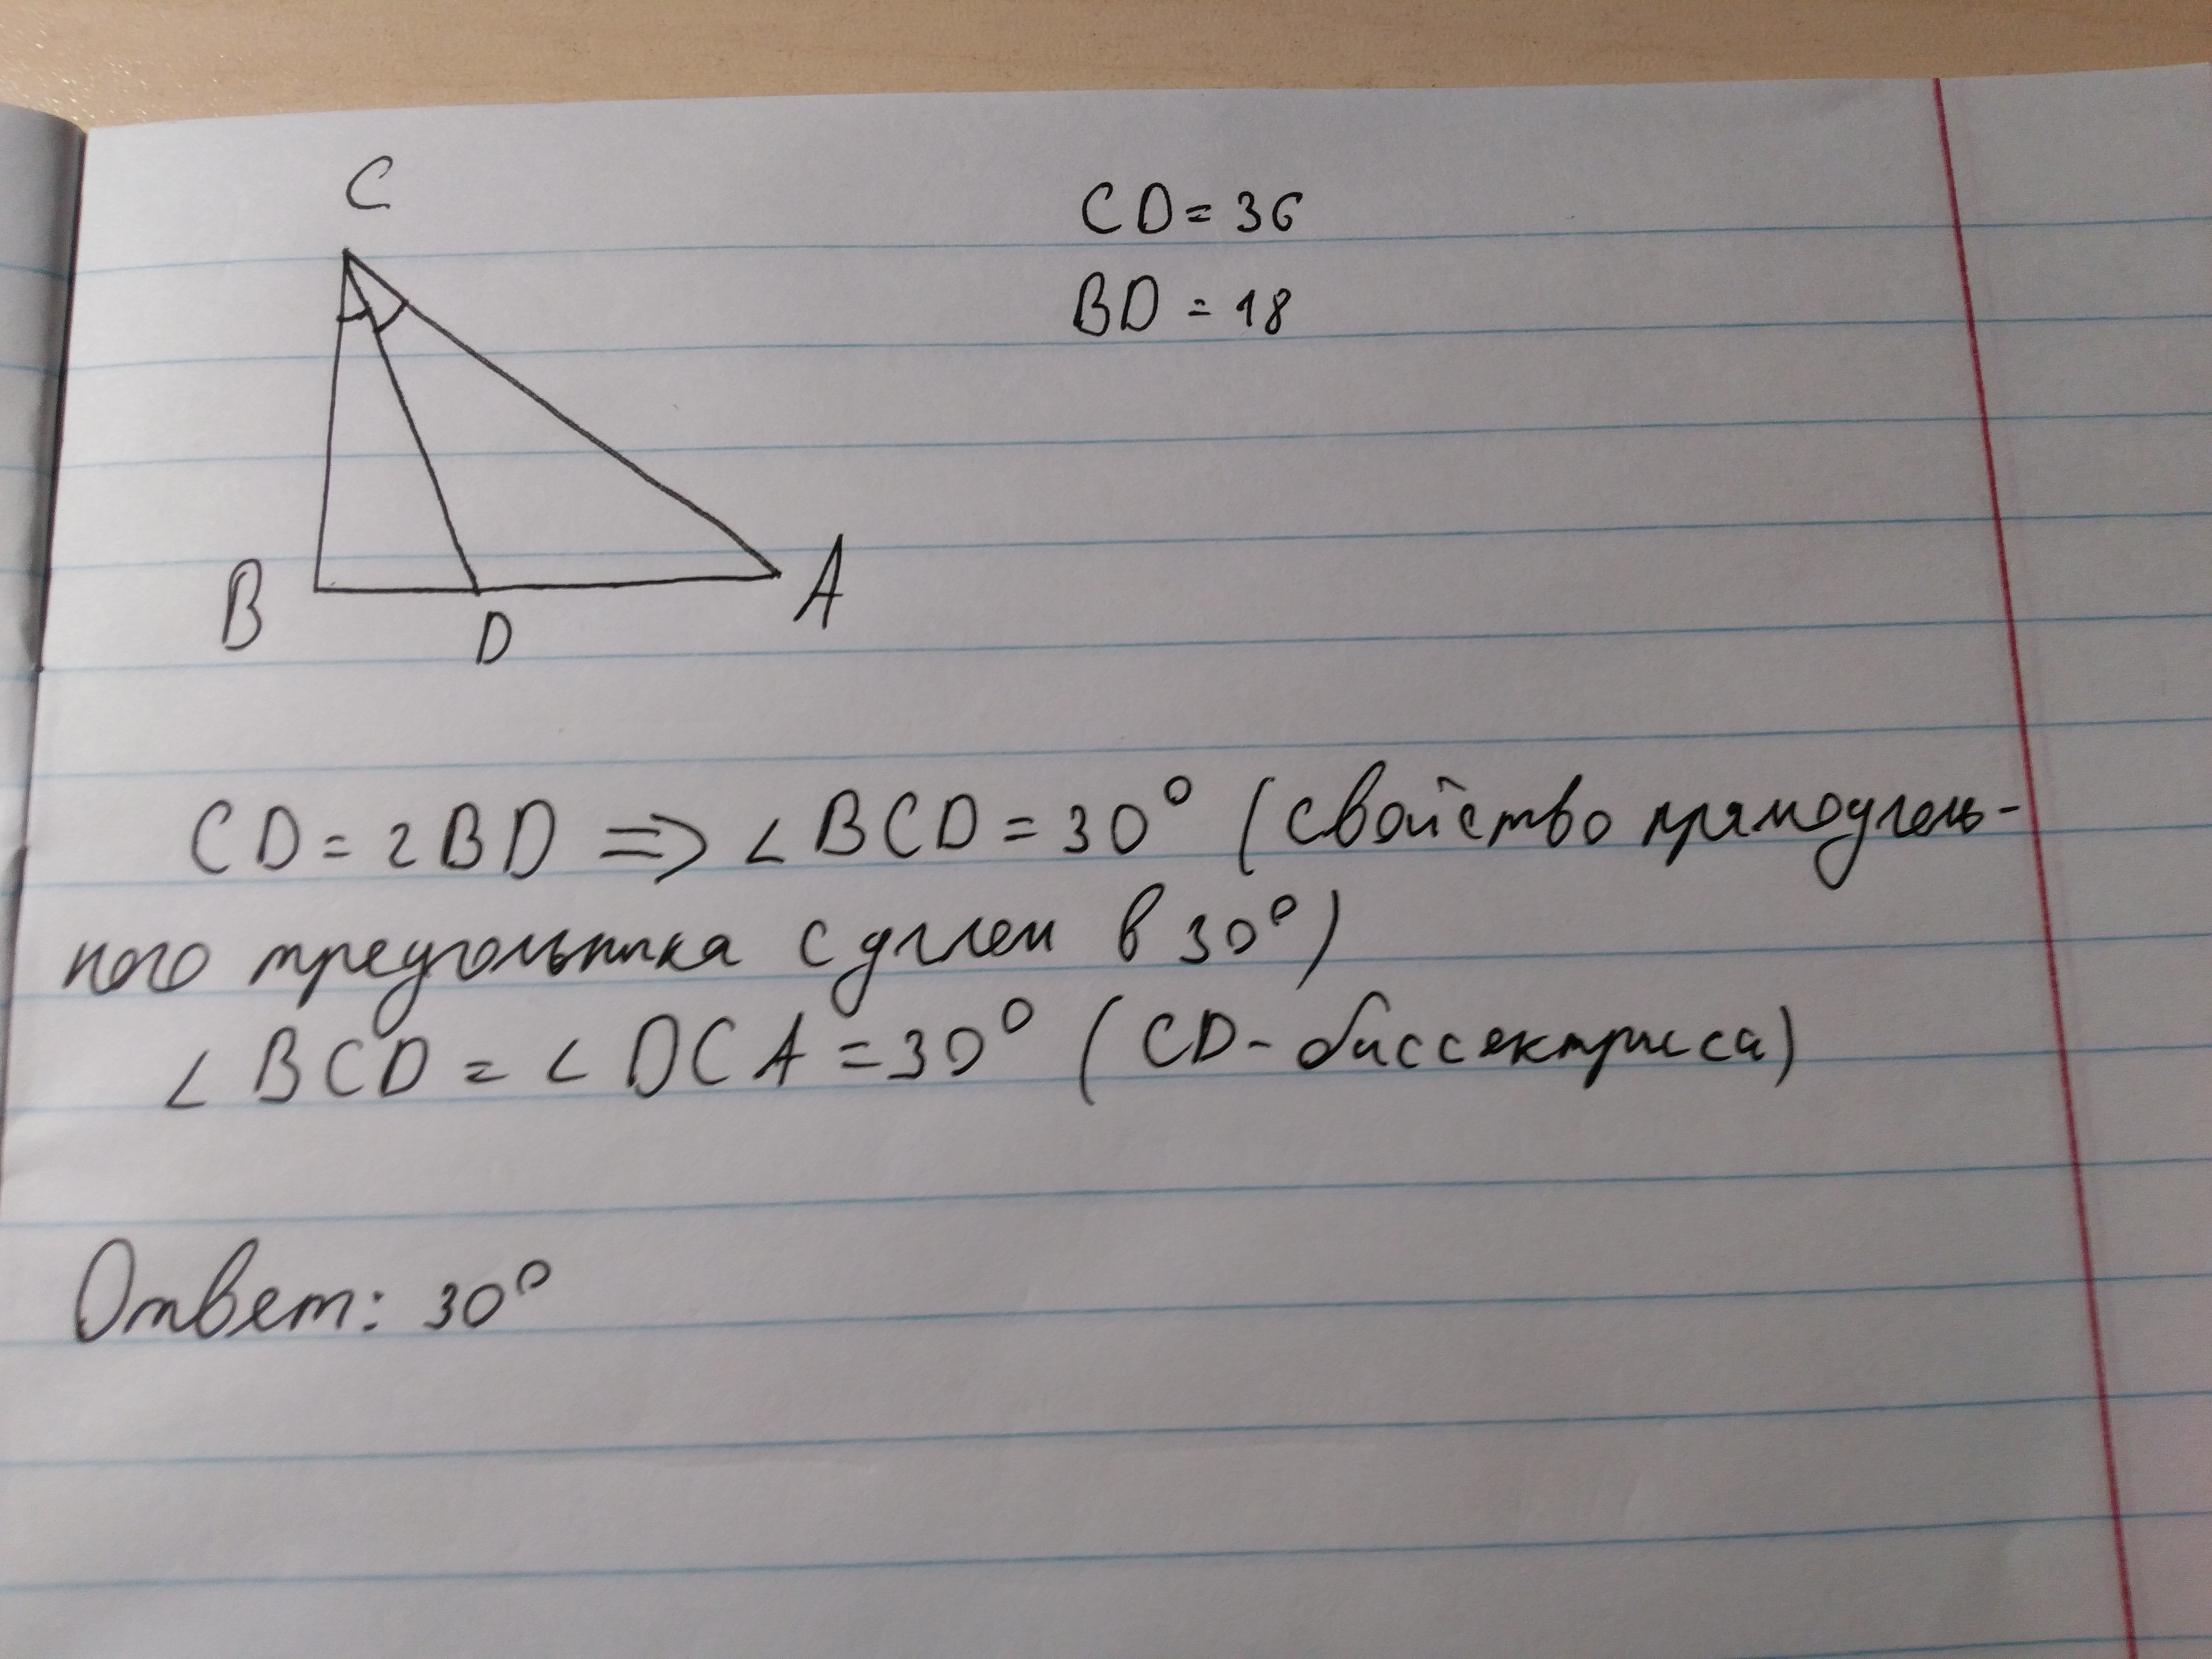 C
CD = 36
BD = 18
B
D
A
CD = 2BD => ∠BCD = 30° (свойство прямоуголь-
ного треугольника с углем в 30°)
∠BCD = ∠DCA = 30° (CD - биссектриса)
Ответ: 30°